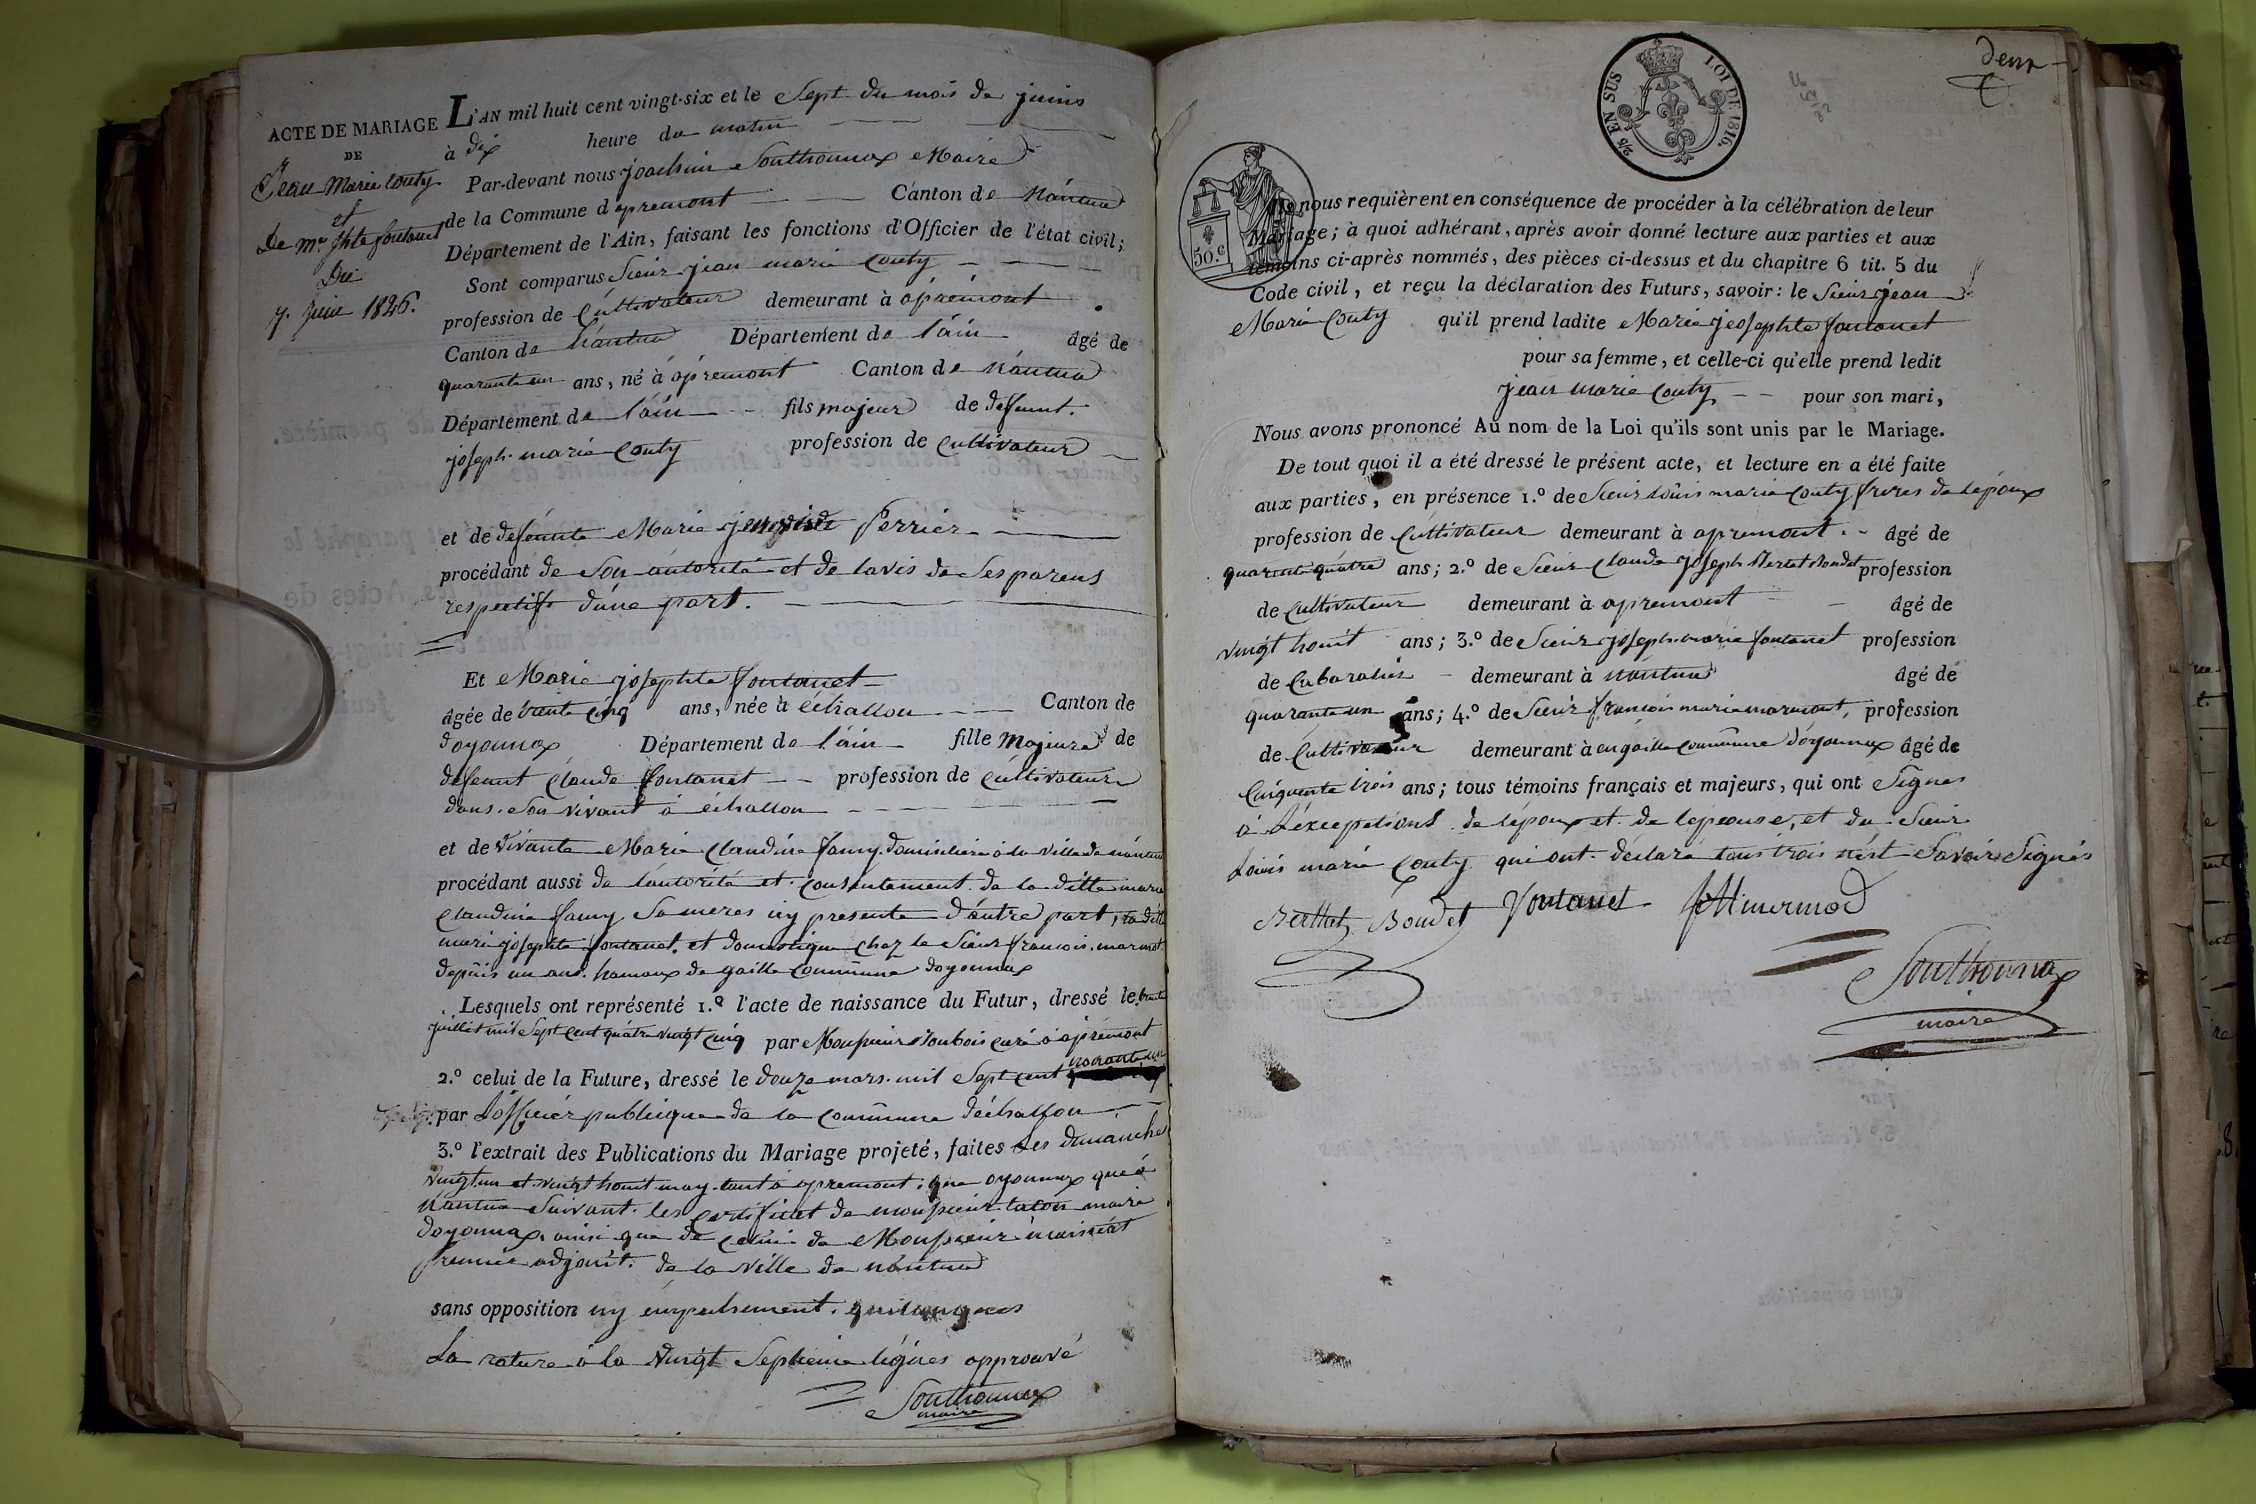 ACTE DE MARIAGE
DE
Jean Marie Couty
et
De Mie Jphte fontanet
Du
7. Juin 1826.
L'AN mil huit cent vingt-six et le Sept du mois de juins
à dix heure du matin
Par-devant nous joachim Southonnax Maire
de la Commune d apremont Canton de Nántua
Département de l'Ain, faisant les fonctions d'Officier de l'état civil;
Sont comparus Sieur jean marie Couty
profession de Cultivateur demeurant à ápremont
Canton de Nántua Département de l'áin âgé de
quarante un ans, né à ápremont Canton de Nántua
Département de l'áin fils majeur de defeunt
joseph marie Couty profession de Cultivateur
et de defeunte Marie Perrier
procédant de Son autorité et de lavis de Ses parens
respectifs d'une part.
Et Marie josephte fontanet
âgée de trente cinq ans, née à échallon Canton de
doyonnax Département de l'áin fille Majeure de
defeunt Claude fontanet profession de Cultivateur
dans Son vivant à échallon
et de vivante Marie Claudine famy domiciliée à la ville de nántua
procédant aussi de l'autorité et Consentement de la ditte marie
Claudine famy Sa meres icy présente d'autre part, la ditte
marie josephte fontanet et domestique chez le Sieur francois marmet
depuis un ans hamaux de gaille Commune doyonnax
Lesquels ont représenté 1.º l'acte de naissance du Futur, dressé le trente
juillet mil Sept Cent quatre vingt cinq par Monsieur Dubois curé à ápremont
2.º celui de la Future, dressé le douze mars mil Sept Cent nonante un
par L'officier publique de la Commune d'échallon
3.º l'extrait des Publications du Mariage projeté, faites Les dimanches
vingt un et vingt houit may tant à apremont que oyonnax que à
Nantua Suivant les certificat de monsieur tacon maire
doyonnax, ainsi que de Celui de Monsieur
premier adjoint de la ville de nántua
sans opposition ny empechement quelconques
La rature à la vingt Septieme lignes approuvé
Southonnax
maire
deux
2/5 EN SUS LOI DE 1816.
50.c
Ils nous requièrent en conséquence de procéder à la célébration de leur
Mariage; à quoi adhérant, après avoir donné lecture aux parties et aux
témoins ci-après nommés, des pièces ci-dessus et du chapitre 6 tit. 5 du
Code civil, et reçu la déclaration des Futurs, savoir: le Sieur jean
Marie Couty qu'il prend ladite Marie jeosephte fontanet
pour sa femme, et celle-ci qu'elle prend ledit
jean marie Couty pour son mari,
Nous avons prononcé Au nom de la Loi qu'ils sont unis par le Mariage.
De tout quoi il a été dressé le présent acte, et lecture en a été faite
aux parties, en présence 1.º de Sieur Louis marie Couty freres de lépoux
profession de Cultivateur demeurant à apremont âgé de
quarante quatre ans; 2.º de Sieur Claude joseph Bertet Boudet profession
de Cultivateur demeurant à apremont âgé de
vingt houit ans; 3.º de Sieur joseph marie fontanet profession
de Cabaratier demeurant à nantua âgé de
quarante un ans; 4.º de Sieur francois marie marmont, profession
de Cultivateur demeurant à en gaille Commune d'oyonnax âgé de
Cinquente trois ans; tous témoins français et majeurs, qui ont Signes
à L'éxceptions de lépoux et de lepeouse, et du Sieur
Louis marie Couty qui ont declaré tous trois Savoir Signés
Berthet Boudet Fontanet
Southonnax
maire